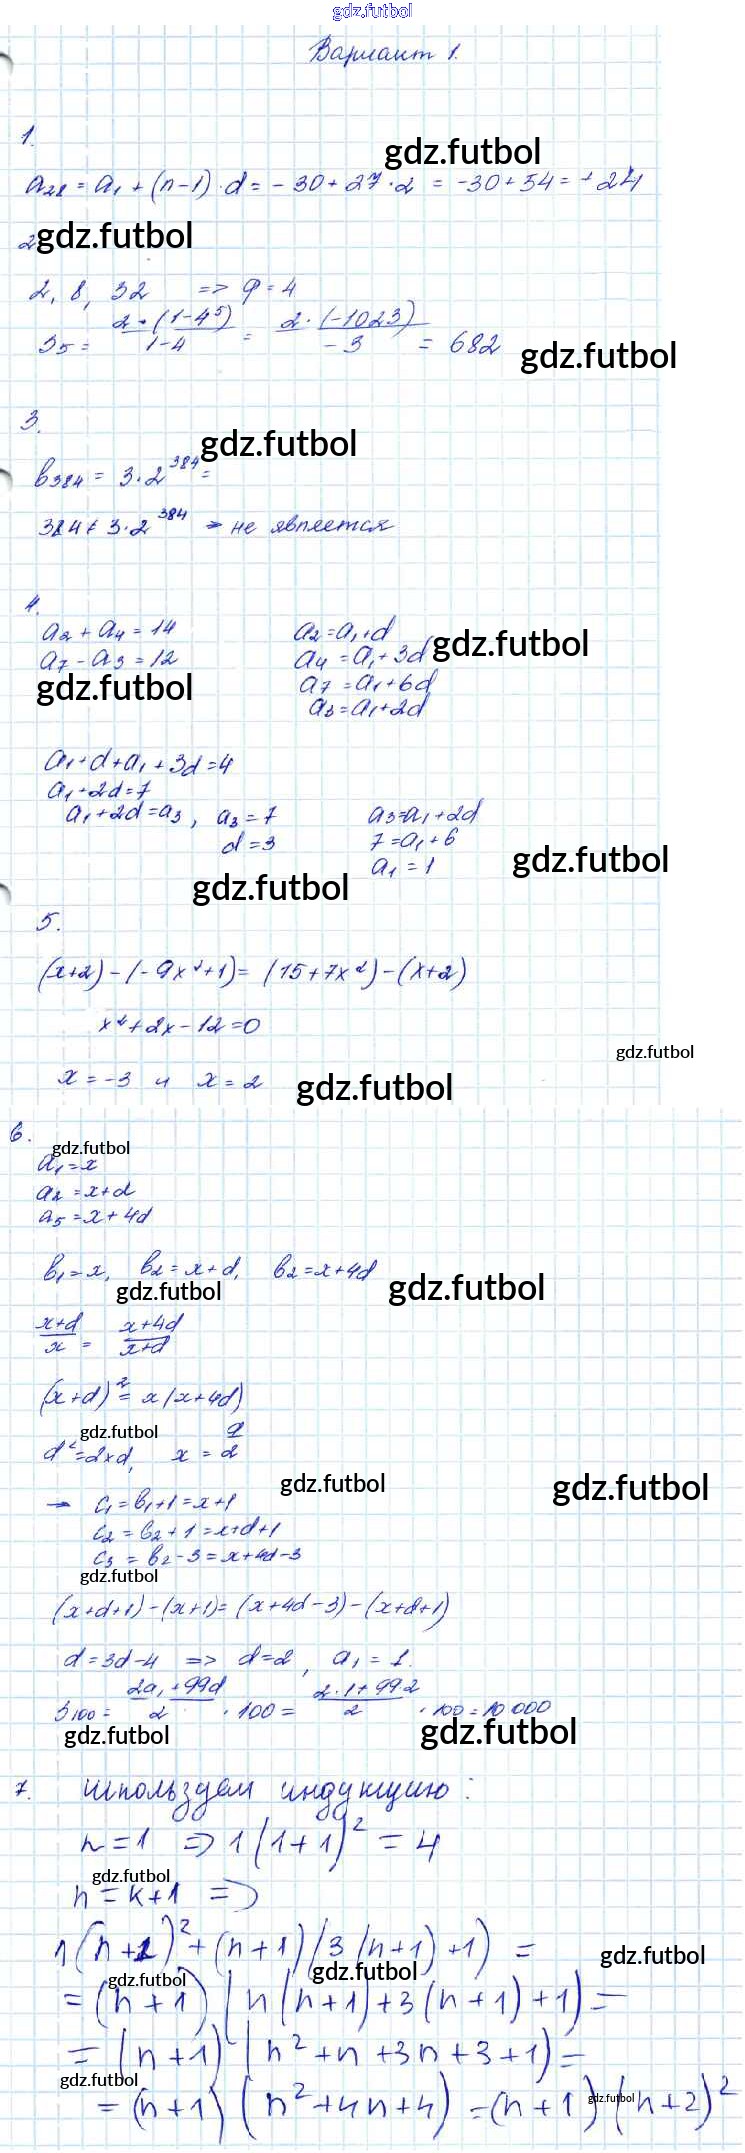 gdz.futbol
Вариант 1.
1.
gdz.futbol
a₂₈ = a₁ + (n-1)·d = -30 + 27·2 = -30 + 54 = +24
2 gdz.futbol
2, 8, 32 => q = 4
S₅ = 2·(1-4⁵)/1-4 = 2·(-1023)/-3 = 682 gdz.futbol
3.
gdz.futbol
b₃₈₄ = 3·2³⁸⁴ =
384 ≠ 3·2³⁸⁴ → не является
4.
a₂ + a₄ = 14 a₂ = a₁+d
a₇ - a₃ = 12 a₄ = a₁+3d gdz.futbol
gdz.futbol a₇ = a₁+6d
a₃ = a₁+2d
a₁+d+a₁+3d=4
a₁+2d=7
a₁+2d=a₃, a₃=7 a₃=a₁+2d
d=3 7=a₁+6
gdz.futbol a₁=1 gdz.futbol
5.
(x+2)-(-9x²+1)=(15+7x²)-(x+2)
x²+2x-12=0
gdz.futbol
x = -3 и x = 2 gdz.futbol
6.
gdz.futbol
a₁=x
a₂=x+d
a₅=x+4d
b₁=x, b₂=x+d, b₂=x+4d
gdz.futbol gdz.futbol
x+d/x = x+4d/x+d
(x+d)²=x(x+4d)
gdz.futbol
d²=2xd, x = d/2
gdz.futbol gdz.futbol
→ c₁=b₁+1=x+1
c₂=b₂+1=x+d+1
c₃=b₂-3=x+4d-3
gdz.futbol
(x+d+1)-(x+1)=(x+4d-3)-(x+d+1)
d=3d-4 => d=2, a₁=1.
S₁₀₀= 2a₁+99d/2 ·100 = 2·1+99·2/2 ·100=10 000
gdz.futbol gdz.futbol
7. Используем индукцию:
n=1 => 1(1+1)²=4
gdz.futbol
n=k+1 =>
1(n+1)²+(n+1)(3(n+1)+1)=
gdz.futbol gdz.futbol gdz.futbol
=(n+1)(n(n+1)+3(n+1)+1)=
=(n+1)(n²+n+3n+3+1)=
gdz.futbol gdz.futbol
=(n+1)(n²+4n+4)=(n+1)(n+2)²